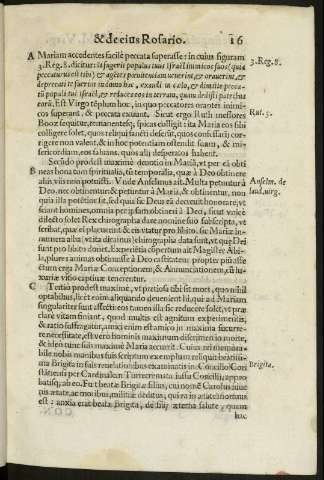 & de eius Rosario. 16
A Mariam accedentes facile peccata superasse: in cuius figuram
3. Reg. 8. dicitur: si fugerit populus tuus Israël inimicos suos (quia 3. Reg. 8.
peccaturus est tibi) & agētes pœnitentiam venerint, & orauerint, &
deprecati te fuerint in domo hac, exaudi in cælo, & dimitte pecca-
ta populi tui Israël, & reduces eos in terram, quam dedisti patribus
eorū. Est Virgo tēplum hoc, in quo peccatores orantes inimi-
cos superant, & peccata euitant. Sicut ergo Ruth messores Rut. 2.
Booz sequitur, remanentesq; spicas colligit: ita Maria eos sibi
colligere solet, quos reliqui sancti deserūt, quos confessarij cor-
rigere non valent, & in hoc potentiam suam ostendere, & mi-
sericordiam eos saluans, quos alij desperatos habent.
Secūdo prodest maximè deuotio in Mariā, vt per eā obti
B neas bona tum spiritualia, tū temporalia, quæ à Deo obtinere
aliàs vis non potuisti. Vnde Anselmus ait. Multa petuntur à Anselm. de
Deo, nec obtinentur: & petuntur à Maria, & obtinentur, non laud. virg.
quia illa potētior sit, sed quia sic Deus eā decreuit honorare, vt
sciant homines, omnia per ipsam obtineri à Deo,
dilecto solet Rex chirographa dare nomine suo subscripta, vt
scribat, quæ ei placuerint & eis vtatur pro libito. sic Mariæ in-
numera alba (vt ita dicamus) chirographa data sunt, vt quę Dei
sunt pro libito donet. Expertētia compertum ait Magister Abi-
la, plures animas obtinuisse à Deo castitatem propter pūitasse
ctum erga Mariæ Conceptionem, & Annunciationem, cū lu-
xuriæ vitio opprimerentur.
C Tertio prodest maximè, vt pretiosa tibi sit mors, quo nihil
optabilius, licet enim aliquando deueniant
singulariter sunt affecti eos tamen illa sic reducere solet, vt præ-
clarè vitam finiant, quod multis est agnitum experimentis,
& ratio suffragatur, amici enim est amico in maxima succurre-
re necessitate, est verò hominis maximum discrimen in morte,
& ideò tunc suis maximè Maria occurrit. Cuius rei memora-
bile nobis manibus suis scriptum exemplum reliquit beatissi-
ma Brigita in suis reuelationibus examinatis in Concilio Con Brigita.
stātiensi per Cardinalem Turrecremata iussu Concilij, appro-
batisq; ab eo. Fuit beatæ Brigitæ filius, cui nomē Carolus
quę ætate, ac moribus militiæ deditus, qui ea in ætate mortuus
est: anxia erat beata Brigita, de filij æterna salute, quam
hac